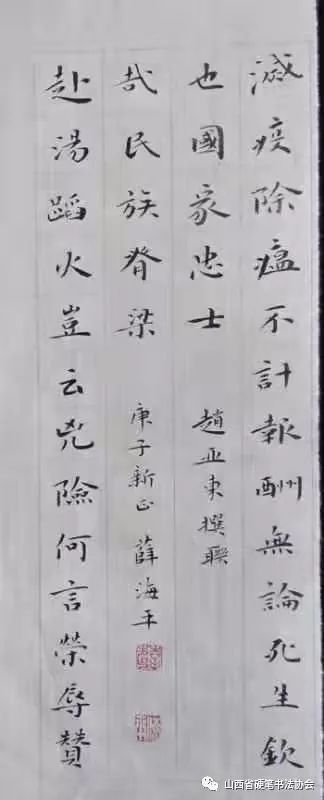 滅疫除瘟不計報酬無論死生欽
也國家忠士
趙亚東撰聯
赴湯蹈火豈云兇險何言榮辱贊
哉民族脊梁
庚子新正 薛海平
山西省硬笔书法协会